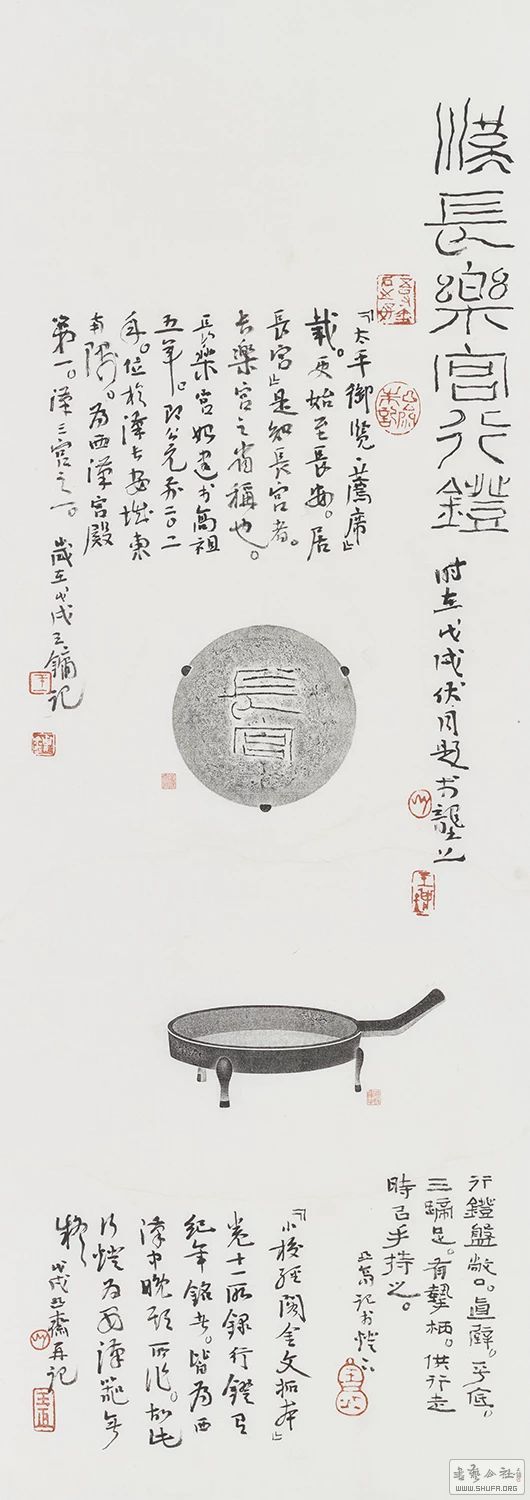 漢長樂宮行鐙
時在戊戌伏月題于
『太平御覽·薦席』
載。更始至長安。居
長宮』是知長宮者。
長樂宮之省稱也。
長樂宮始建於高祖
五年。即公元前二〇二
年。位於漢長安城東
南隅。為西漢宮殿
第一。漢三宮之一。
歲在戊戌三鏞記
長宮
行鐙盤敞口。直壁。平底。
三蹄足。有執柄。供行走
時以手持之。
記於燈下
『小校經閣金文拓本』
卷十一所錄行鐙有
紀年銘者。皆為西
漢中晚期所作。故此
行燈為西漢器無
疑
戊戌 齋再記
書藝公社
WWW.SHUFA.ORG